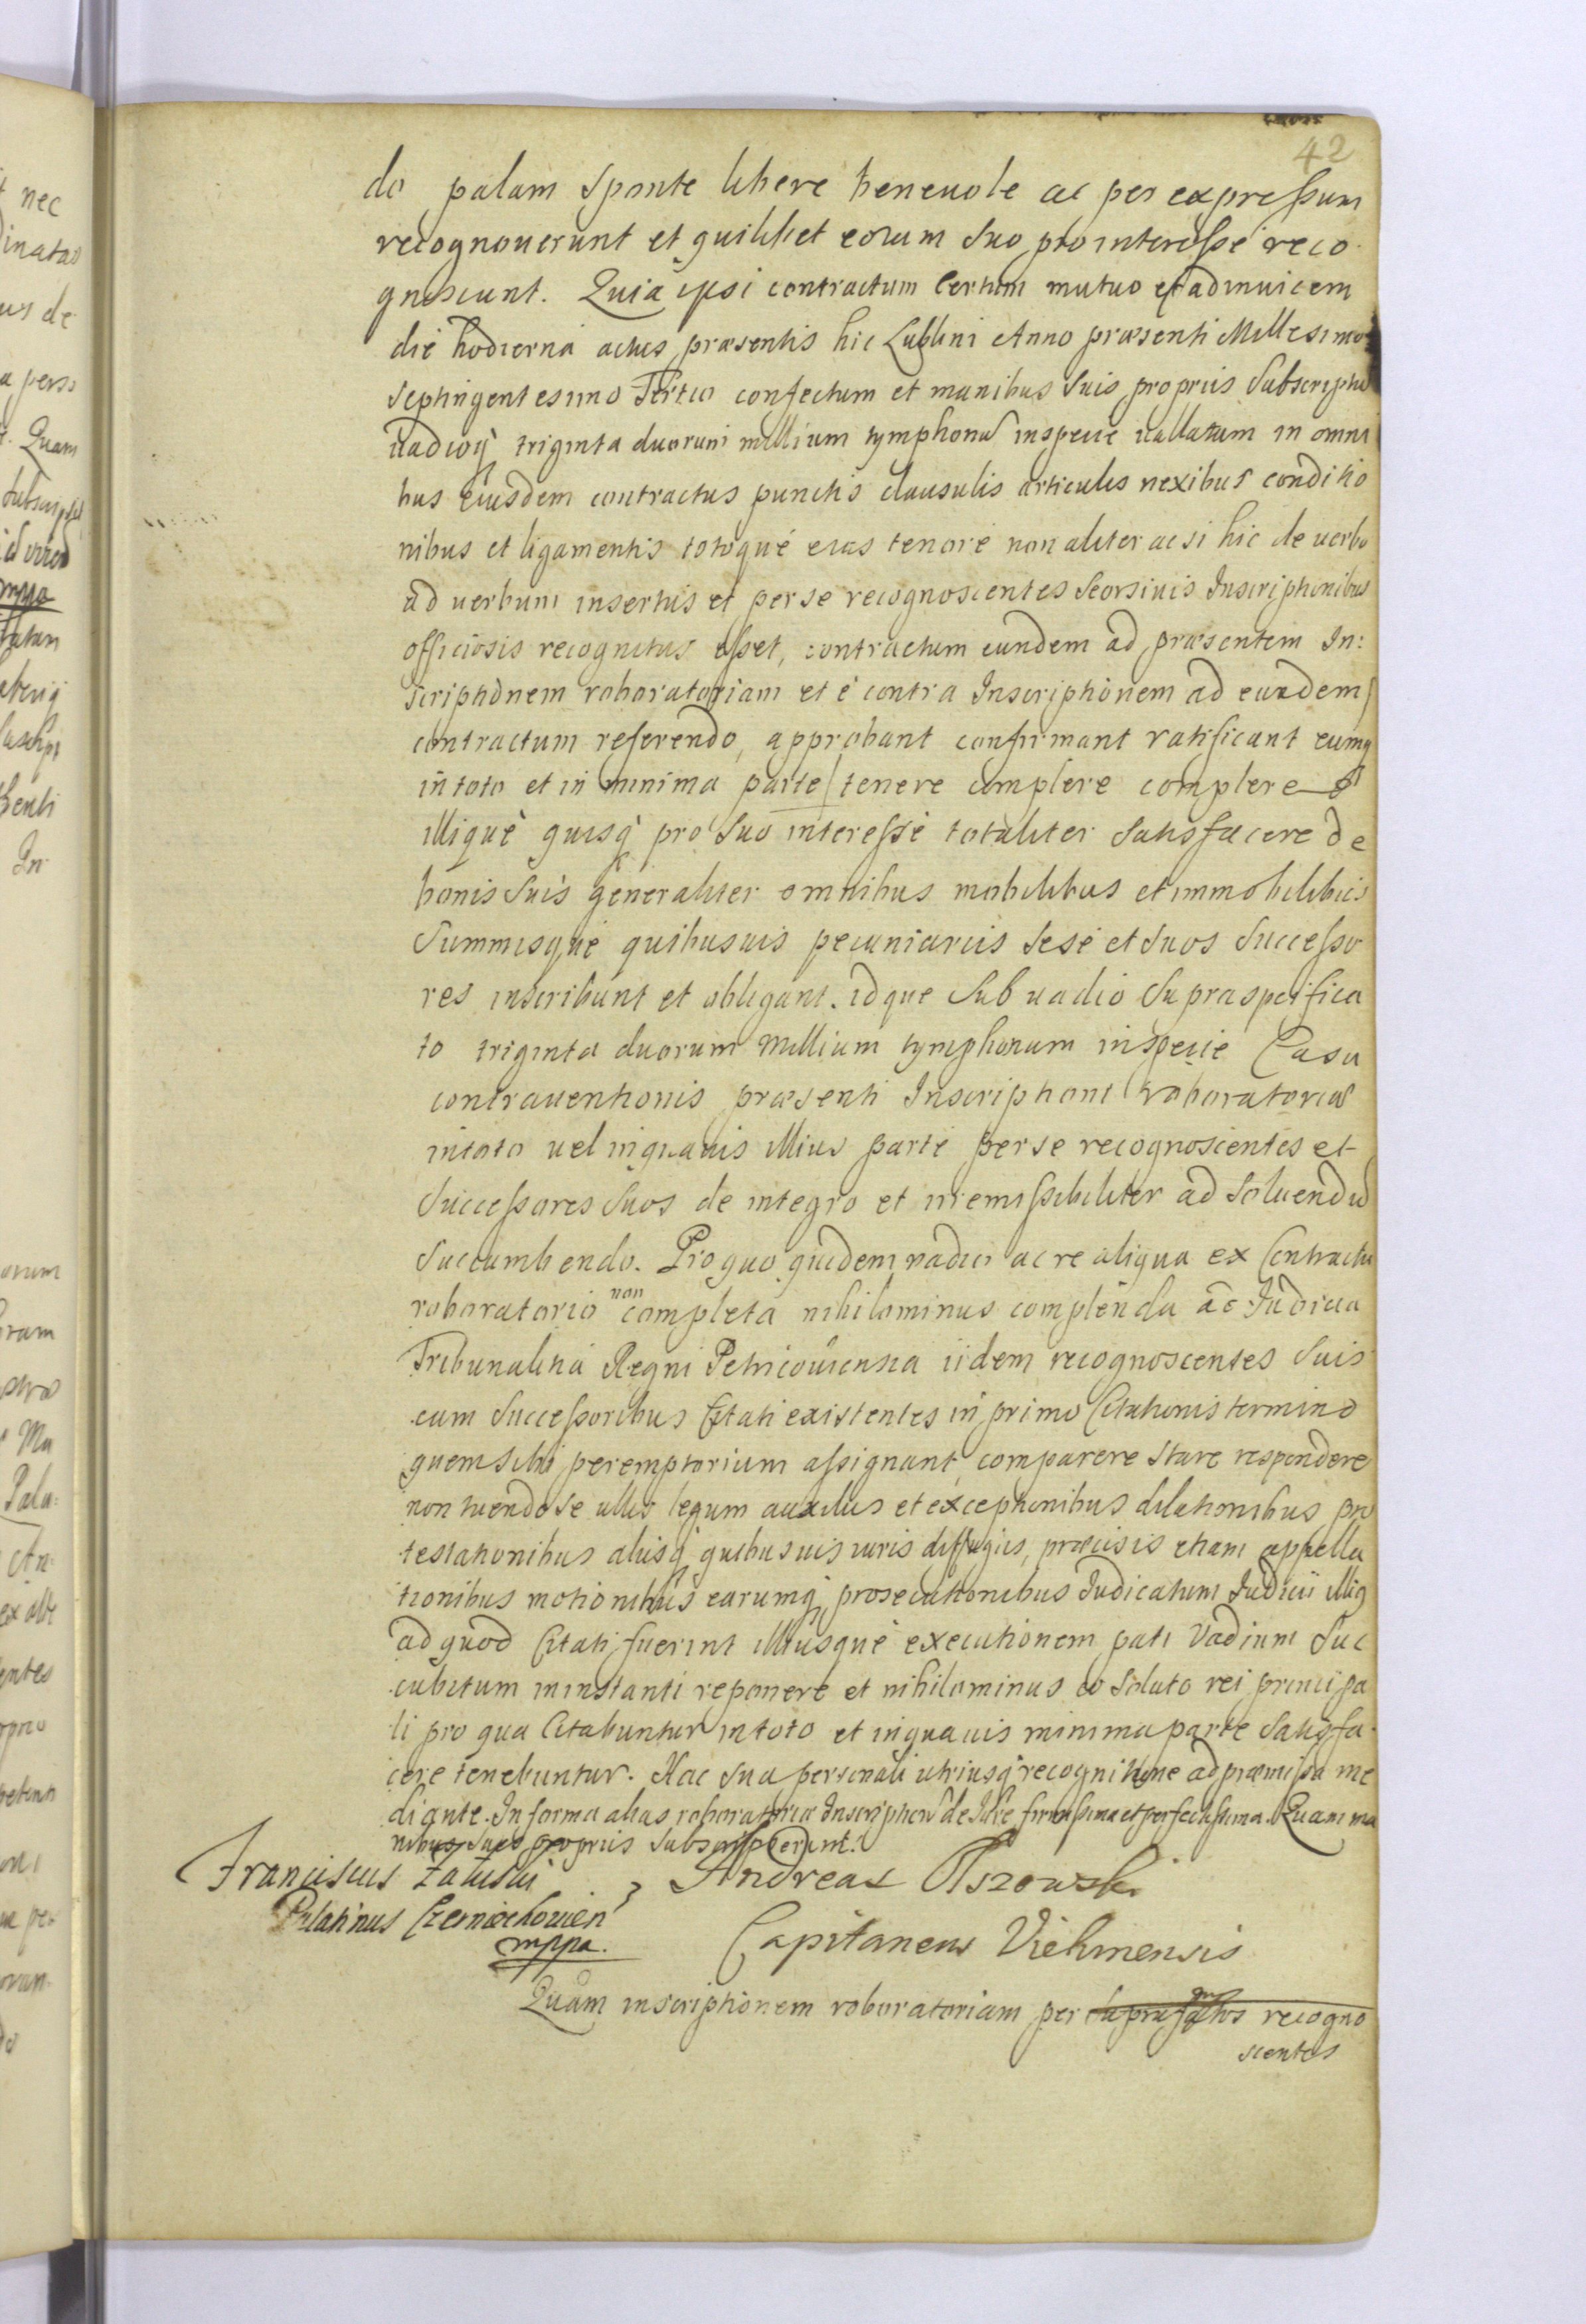 42
do palam sponte libere benevole ac per expressum
recognoverunt et quilibet eorum suo pro interesse reco
gnoscunt. Quia ipsi contractum certum mutuo et ad invicem
die hodierna actus præsentis hic Lublini Anno præsenti Millesimo
septingentesimo Tertio confectum et manibus suis propriis subscriptu
vadioq triginta duorum millium tymphonu in specie vallatum in omni
bus eiusdem contractus punctis clausulis articulis nexibus conditio
nibus et ligamentis totoque eius tenore non aliter ac si hic de verbo
ad verbum insertus et per se recognoscentes seorsivis Inscriptionibus
officiosis recognitus esset, contractum eundem ad præsentem In:
scriptionem roboratoriam et e contra Inscriptionem ad eundem
contractum referendo, approbant confirmant ratificant eumq
in toto et in minima parte tenere complere
illique quisq pro suo interesse totaliter satisfacere de
bonis suis generaliter omnibus mobilibus et immobilibus
summisque quibusvis pecuniariis sese et suos successo
res inscribunt et obligant. idque sub vadio supraspecifica
to triginta duorum millium tymphonum in specie Casu
contraventionis præsenti Inscriptioni roboratoriæ
in toto vel in quavis illius parte per se recognoscentes et
successores suos de integro et irremissibiliter ad solvendu
succumbendo. Pro quo quidem vadio ac re aliqua ex Contractu
roboratorio non completa nihilominus complenda ad Iudicia
Tribunalitia Regni Petricoviensia iidem recognoscentes suis
cum successoribus Citati existentes in primo Citationis termino
quem sibi peremptorium assignant comparere stare respondere
non tuendo se ullis legum auxiliis et exceptionibus dilationibus pro
testationibus aliisq quibusvis iuris diffugiis, præcisis etiam appella
tionibus motionibus earumq prosecutionibus Iudicatum Iudicii illiq
ad quod Citati fuerint illiusque executionem pati vadium suc
cubitum in instanti reponere et nihilominus eo soluto rei principa
li pro qua Citabuntur in toto et in quavis minima parte satisfa
cere tenebuntur. Hac sua personali utriusq recognitione ad præmissa me
diante. In forma alias roboratoriæ Inscription de Iure firmissima et perfectissima. Quam ma
nibus suis propriis subscripserunt.
Franciscus Załuski
Palatinus Czerniechovien
mppa.
Andreas Olszowski
Capitaneus Vielunensis
Quam inscriptionem roboratoriam per suprafatos recogno
scentes